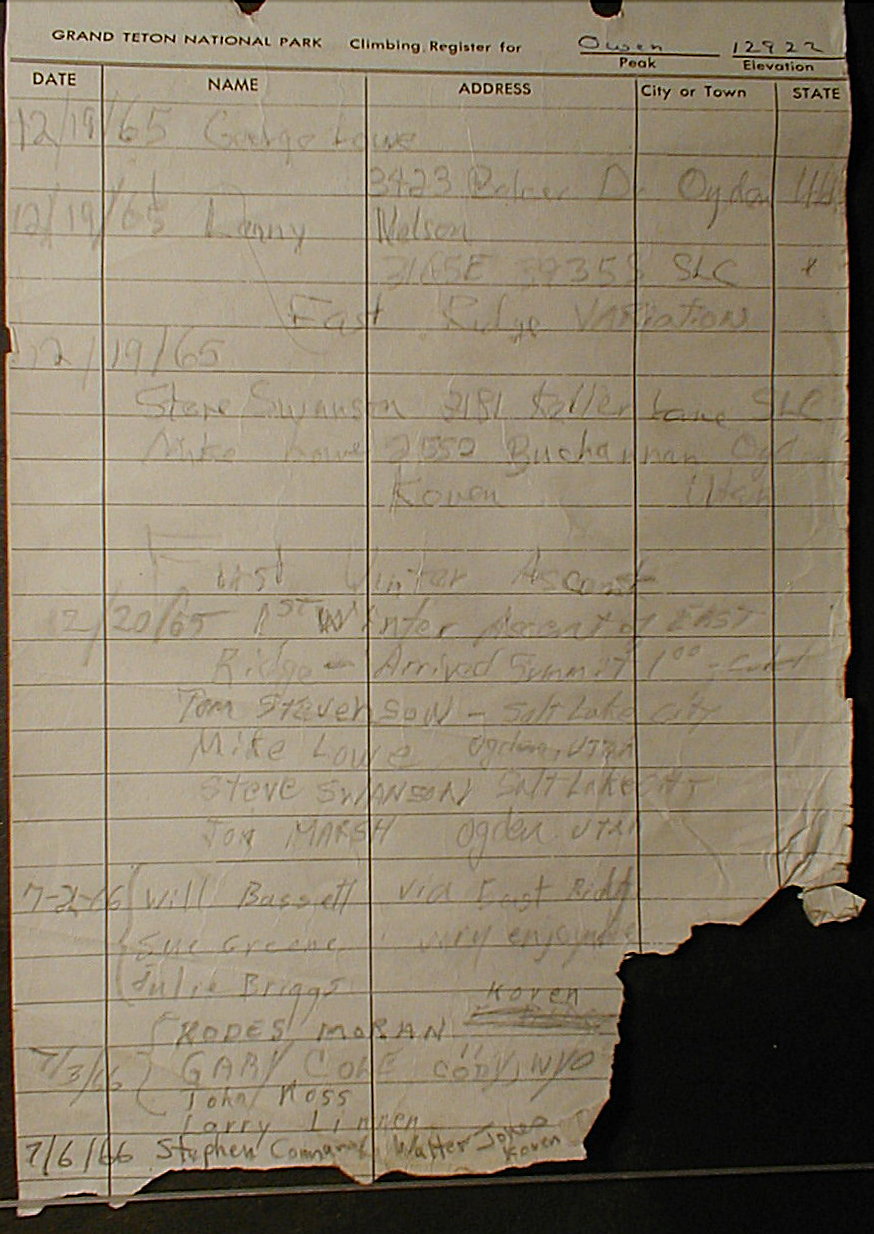 GRAND TETON NATIONAL PARK Climbing Register for Owen 12922
Peak Elevation
DATE NAME ADDRESS City or Town STATE
12/19/65 George Lowe
3423 Dr Ogden
12/19/65 Denny Nelson
3165E 3935S SLC
East Ridge VARIATION
12/19/65
Steve Swanson 3181 Lane SLC
Mike Lowe 2552 Buchannan
Koven Utah
First Winter Ascent
12/20/65 1ST Winter Ascent of EAST
Ridge - Arrived Summit 1 00 -
Tom STEVENSON - Salt Lake City
Mike Lowe Ogden, UTAH
Steve SWANSON Salt Lake City
MARSH Ogden UTAH
7-2-66 Will Bassett via East Ridge
Sue Greene very
Julie Briggs
Koven
RODES MORAN
7/3/66 GARY COLE CODY, WYO
John Ross
Larry Linnen
7/6/66 Stephen Walter Jones
Koven